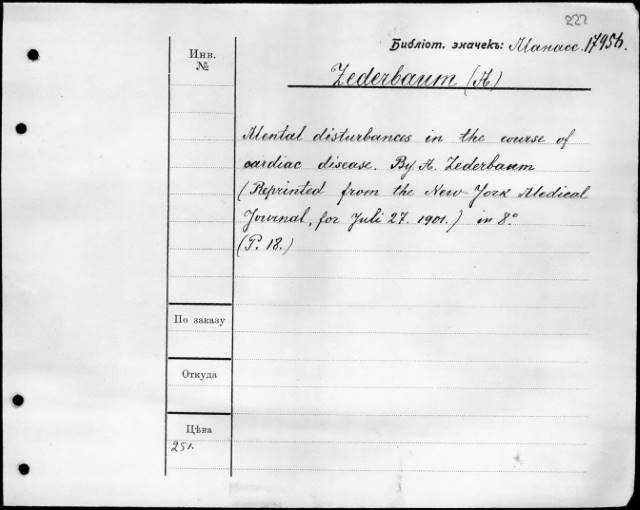 222
Библіот. значекъ: Манасс. 17956.
Инв.
№
Zederbaum (A)
Mental disturbances in the course of
cardiac disease. By A. Zederbaum
(Reprinted from the New-York Medical
Journal, for Juli 27. 1901.) in 8°
(P. 18.)
По заказу
Откуда
Цѣна
25к.